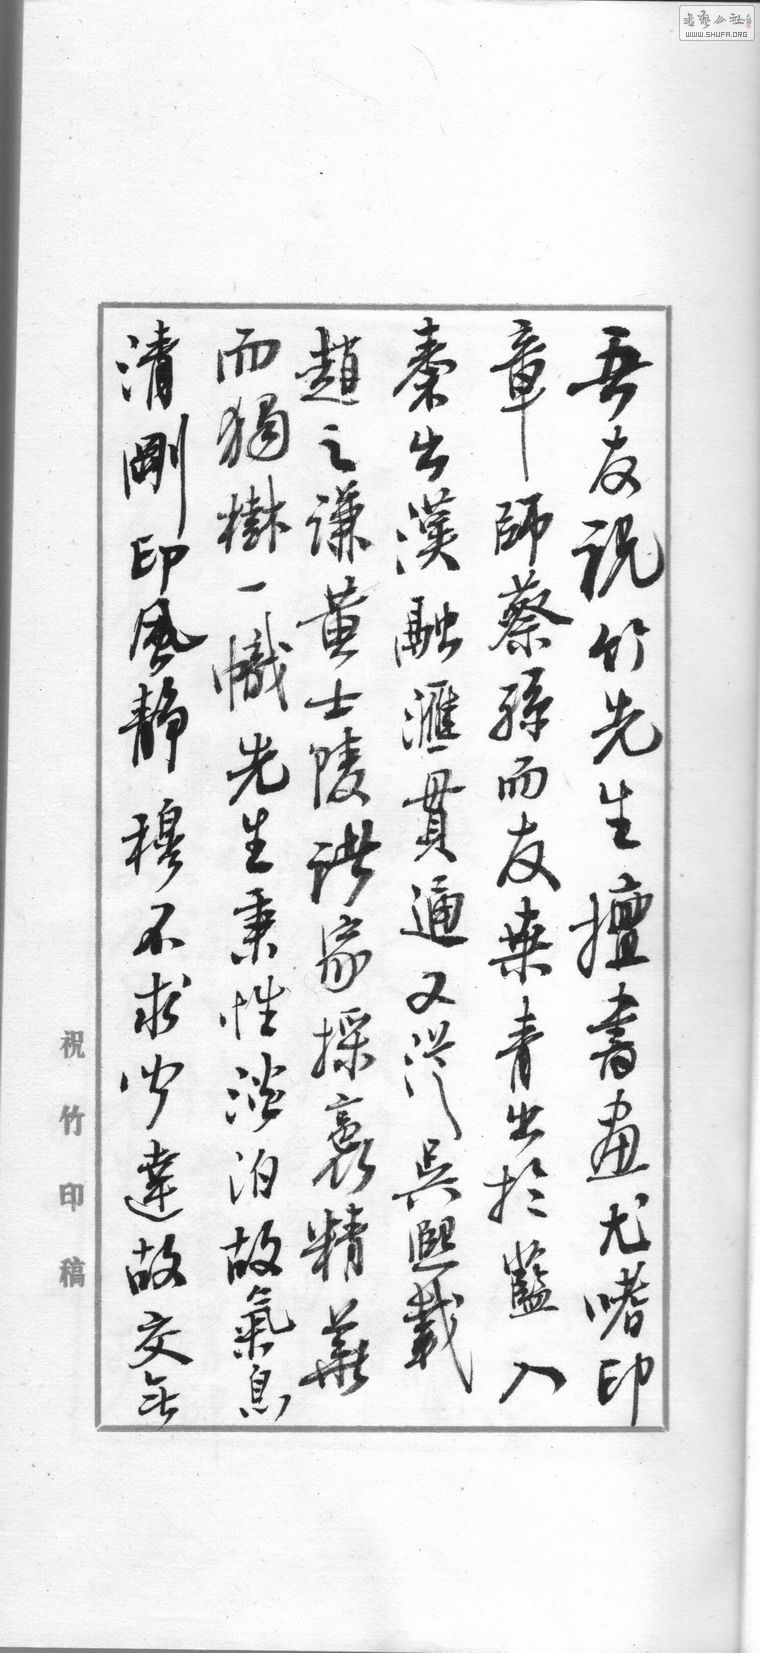 吾友祝竹先生擅書畫尤嗜印
章師蔡孫而友桑青出於藍入
秦出漢融滙貫通又從吳熙載
趙之謙黃士陵諸家採裹精華
而獨樹一幟先生秉性淡泊故氣息
清剛印風靜穆不求聞達故交
祝竹印稿
書藝公社
WWW.SHUFA.ORG